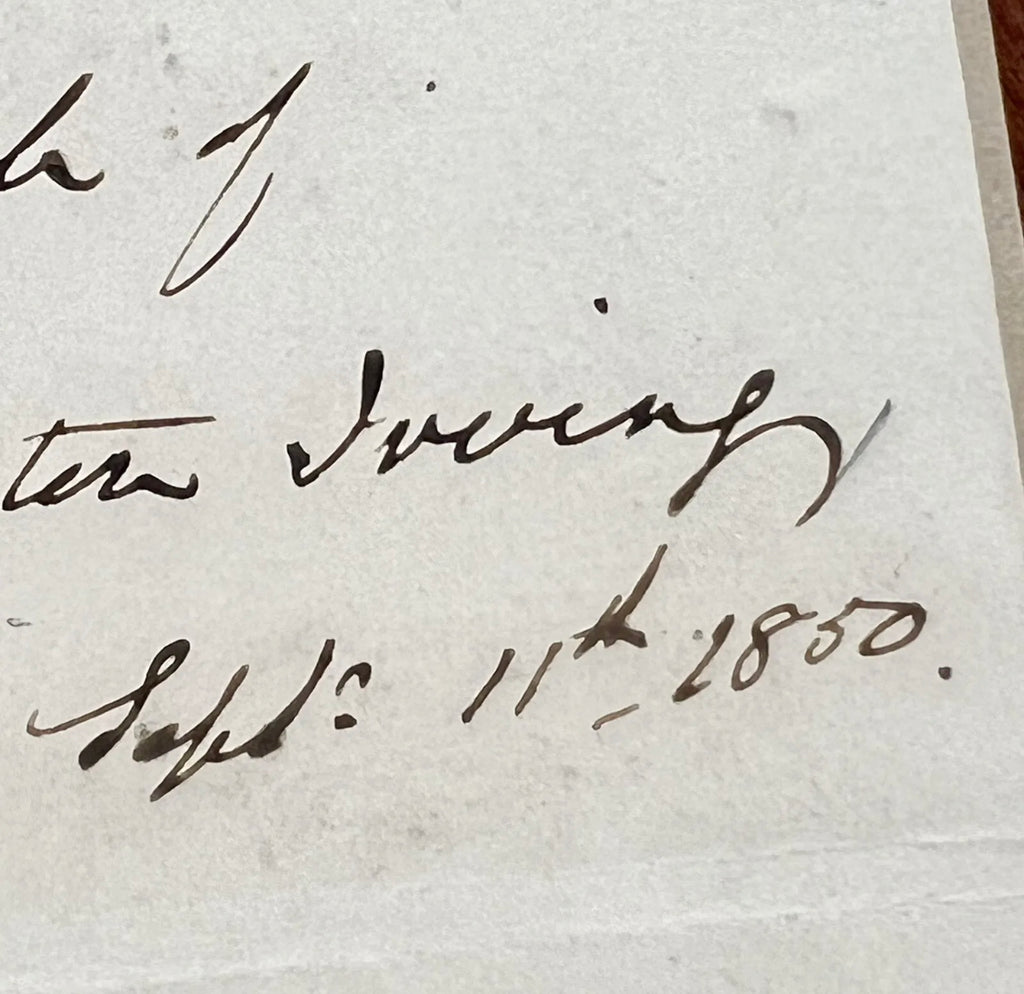 of
ton Irving
Sept: 11th 1850.